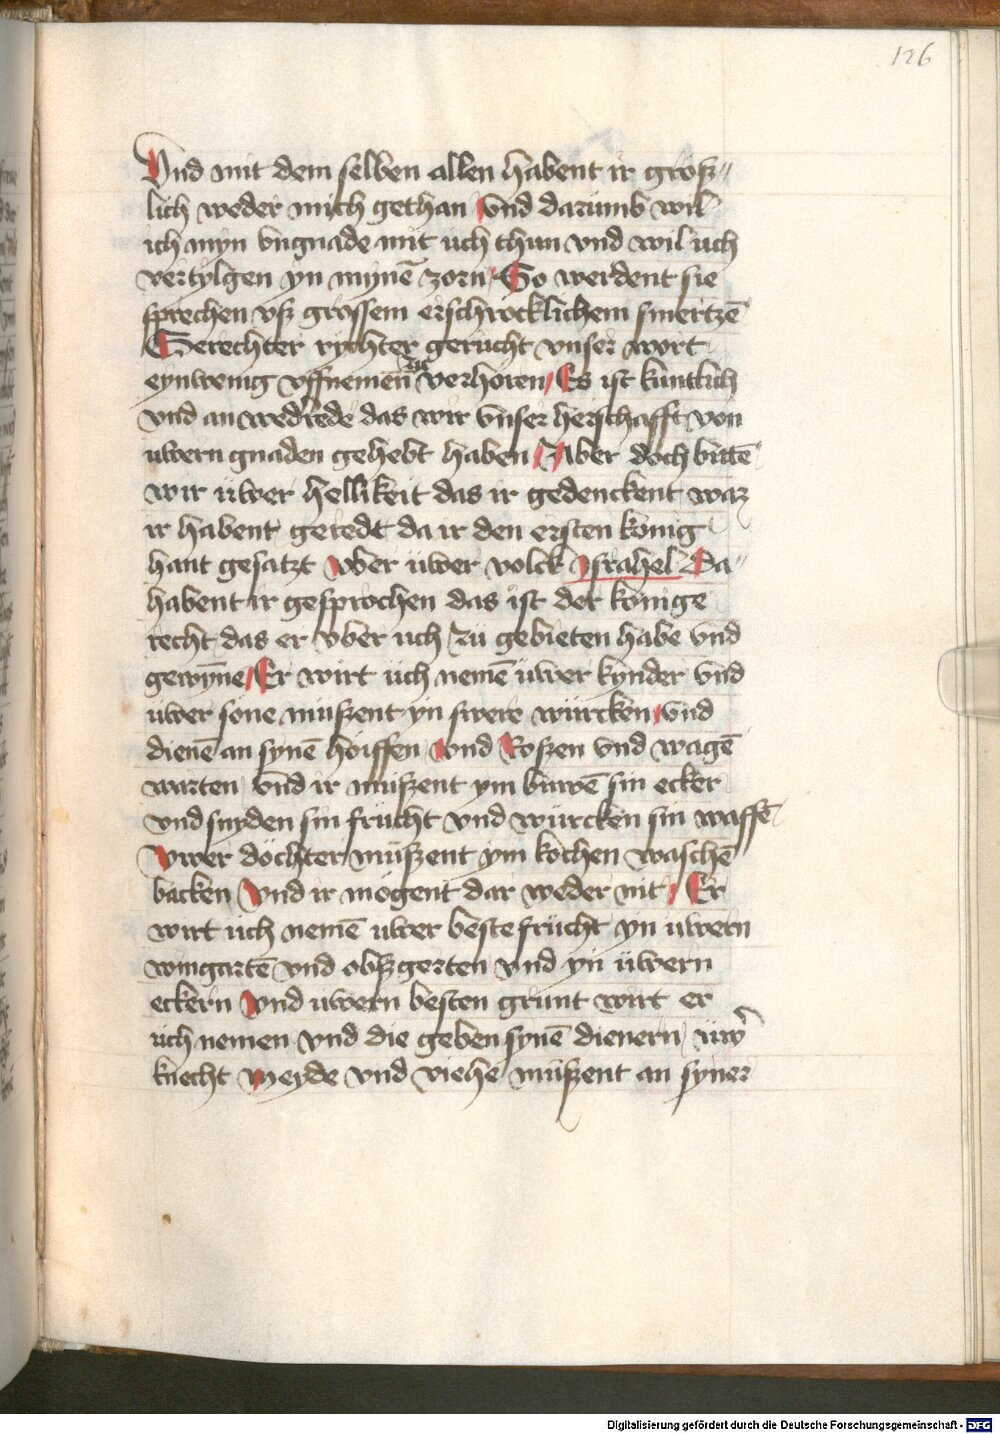 126
Vnd mit dem selben allen habent ir größ„
lich weder mich gethan Vnd darumb wil
ich myn vngnade mit uch thun vnd wil uch
vertylgen yn mynē zorn So werdent sie
sprechen vß grossem erschrocklichem smertzē
Gerechter rychter gerücht vnser wort
eynwenig vffnemen zu verhören / Es ist kuntlich
vnd an wedrede das wir vnser herschafft von
uwern gnaden gehebt haben / Aber doch bittē
wir üwer hellikeit das ir gedenckent waz
ir habent geredt da ir den ersten könig
hant gesatzt Vber üwer volck Israhel Da„
habent ir gesprochen das ist der könige
recht das er vber uch zü gebieten habe vnd
gewÿne / Er wirt üch nemē üwer kynder vnd
üwer söne müßent yn swere würcken / vnd
dienē an synē höiffen Vnd Roßzen vnd wagē
warten vnd ir müßent ym buwē sin ecker
vnd snyden sin frücht vnd würcken sin waffē
Vwer döchter müßent ym kochen waschē
backen Vnd ir mögent dar weder nit / Er
wirt uch nemē uwer beste frücht yn uwern
wingartē vnd obßgerten vnd yn üwern
eckern Vnd uwern besten grunt wirt er
üch nemen vnd die geben synē dienern üw̉
knecht Meyde vnd viehe müßent an syner
Digitalisierung gefördert durch die Deutsche Forschungsgemeinschaft - DFG